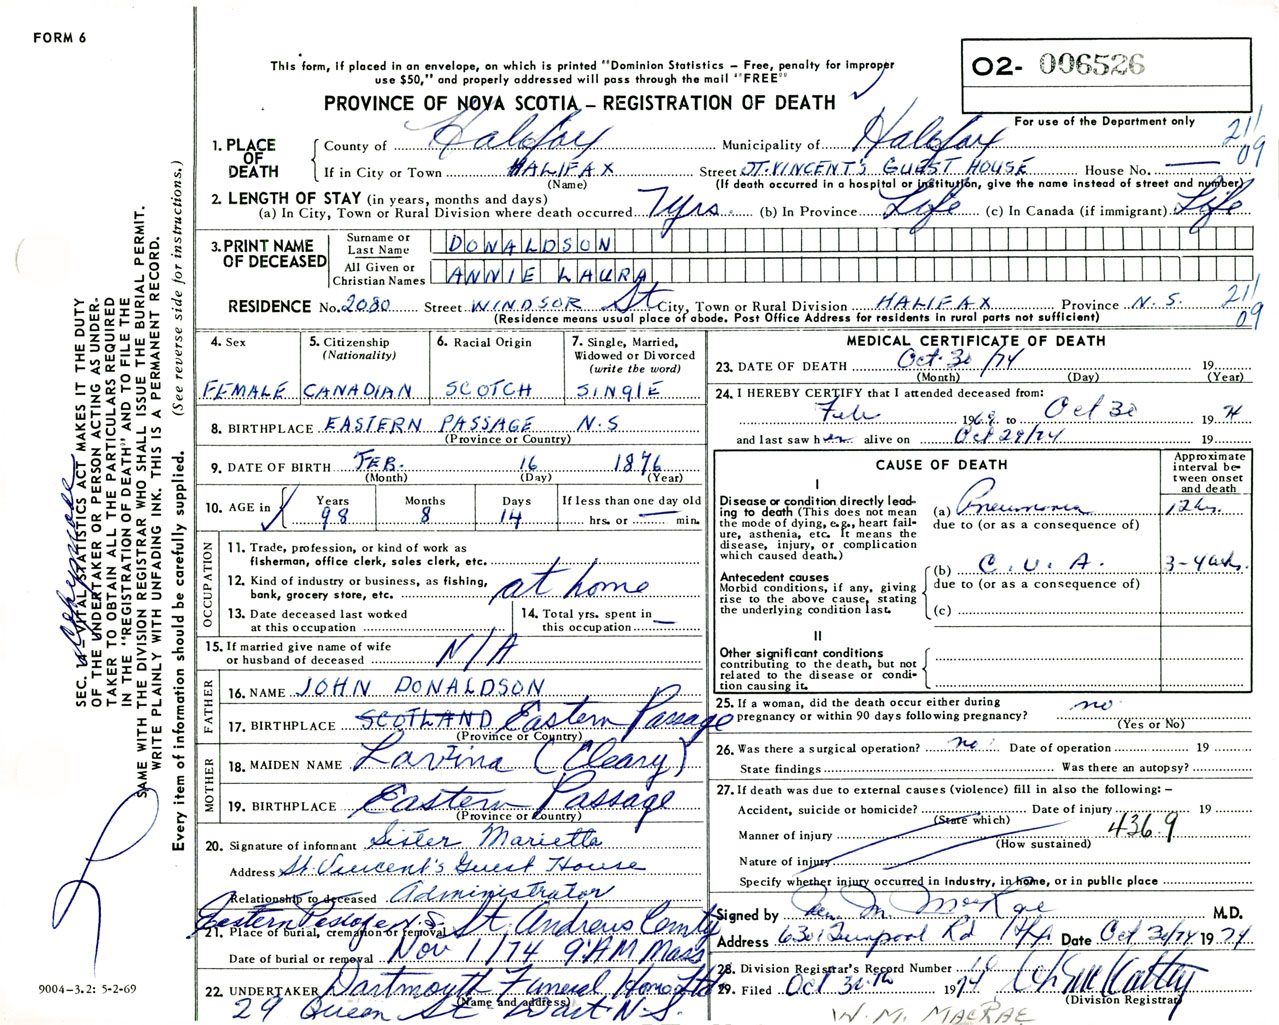 FORM 6
This form, if placed in an envelope, on which is printed "Dominion Statistics – Free, penalty for improper
use $50," and properly addressed will pass through the mail "FREE"
O2- 006526
PROVINCE OF NOVA SCOTIA – REGISTRATION OF DEATH
For use of the Department only
1. PLACE OF DEATH
County of Halifax Municipality of Halifax 21/09
If in City or Town HALIFAX Street ST. VINCENT'S GUEST HOUSE House No. —
(Name) (If death occurred in a hospital or institution, give the name instead of street and number)
2. LENGTH OF STAY (in years, months and days)
(a) In City, Town or Rural Division where death occurred 7 yrs. (b) In Province Life (c) In Canada (if immigrant) Life
3. PRINT NAME OF DECEASED
Surname or Last Name DONALDSON
All Given or Christian Names ANNIE LAURA
RESIDENCE No. 2080 Street WINDSOR St City, Town or Rural Division HALIFAX Province N.S. 21/09
(Residence means usual place of abode. Post Office Address for residents in rural parts not sufficient)
4. Sex
FEMALE
5. Citizenship
(Nationality)
CANADIAN
6. Racial Origin
SCOTCH
7. Single, Married,
Widowed or Divorced
(write the word)
SINGLE
8. BIRTHPLACE EASTERN PASSAGE N.S
(Province or Country)
9. DATE OF BIRTH FEB. 16 1876
(Month) (Day) (Year)
10. AGE in
Years Months Days If less than one day old
98 8 14 hrs. or — min.
OCCUPATION
11. Trade, profession, or kind of work as
fisherman, office clerk, sales clerk, etc.
12. Kind of industry or business, as fishing,
bank, grocery store, etc. at home
13. Date deceased last worked
at this occupation
14. Total yrs. spent in
this occupation —
15. If married give name of wife
or husband of deceased N/A
FATHER
16. NAME JOHN DONALDSON
17. BIRTHPLACE SCOTLAND Eastern Passage
(Province or Country)
MOTHER
18. MAIDEN NAME Lavina (Cleary)
19. BIRTHPLACE Eastern Passage
(Province or Country)
20. Signature of informant Sister Marietta
Address St. Vincent's Guest House
Relationship to deceased Administrator
Eastern Passage N.S. St. Andrews Cemty
21. Place of burial, cremation or removal
Date of burial or removal Nov 1/74 9 AM Mass
22. UNDERTAKER Dartmouth Funeral Home Ltd
(Name and address)
29 Queen St. Dart. N.S.
MEDICAL CERTIFICATE OF DEATH
23. DATE OF DEATH Oct. 30/74 19
(Month) (Day) (Year)
24. I HEREBY CERTIFY that I attended deceased from:
Feb 1968 to Oct 30 1974
and last saw her alive on Oct 29/74 19
CAUSE OF DEATH
Approximate
interval be-
tween onset
and death
I
Disease or condition directly lead-
ing to death (This does not mean
the mode of dying, e.g., heart fail-
ure, asthenia, etc. It means the
disease, injury, or complication
which caused death.)
(a) Pneumonia
due to (or as a consequence of)
Antecedent causes
Morbid conditions, if any, giving
rise to the above cause, stating
the underlying condition last.
(b) C. V. A. 3-4
due to (or as a consequence of)
(c)
II
Other significant conditions
contributing to the death, but not
related to the disease or condi-
tion causing it.
25. If a woman, did the death occur either during
pregnancy or within 90 days following pregnancy? no
(Yes or No)
26. Was there a surgical operation? no. Date of operation 19
State findings Was there an autopsy?
27. If death was due to external causes (violence) fill in also the following: –
Accident, suicide or homicide? Date of injury 19
(State which)
Manner of injury 436.9
(How sustained)
Nature of injury
Specify whether injury occurred in Industry, in home, or in public place
Signed by M. MacRae M.D.
Address Rd Hfx Date Oct 30/74 1974
28. Division Registrar's Record Number
29. Filed Oct 30th 1974
(Division Registrar)
W. M. MACRAE
SEC. 14 – VITAL STATISTICS ACT MAKES IT THE DUTY
OF THE UNDERTAKER OR PERSON ACTING AS UNDER-
TAKER TO OBTAIN ALL THE PARTICULARS REQUIRED
IN THE "REGISTRATION OF DEATH" AND TO FILE THE
SAME WITH THE DIVISION REGISTRAR WHO SHALL ISSUE THE BURIAL PERMIT.
WRITE PLAINLY WITH UNFADING INK. THIS IS A PERMANENT RECORD.
Every item of information should be carefully supplied. (See reverse side for instructions.)
9004–3.2: 5-2-69